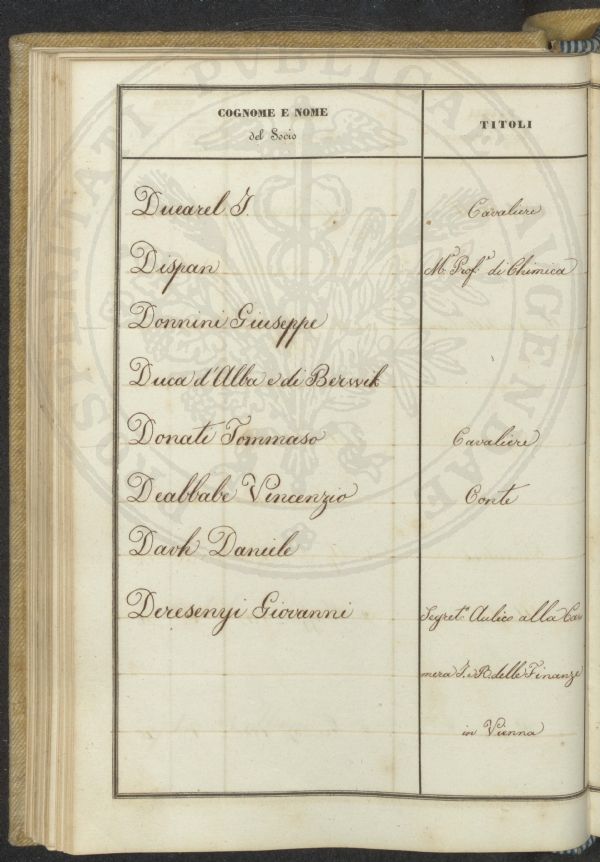 COGNOME E NOME
del Socio
TITOLI
Ducarel J. Cavaliere
Dispan Mr. Profr. di Chimica
Donnini Giuseppe
Duca d'Alba e di Berwik
Donati Tommaso Cavaliere
Deabbate Vincenzio Conte
Davh Daniele
Deresenyi Giovanni Segreto. Aulico alla Ca=
mera I. e R. delle Finanze
in Vienna
PROSPERITATI PVBLICAE AVGENDAE